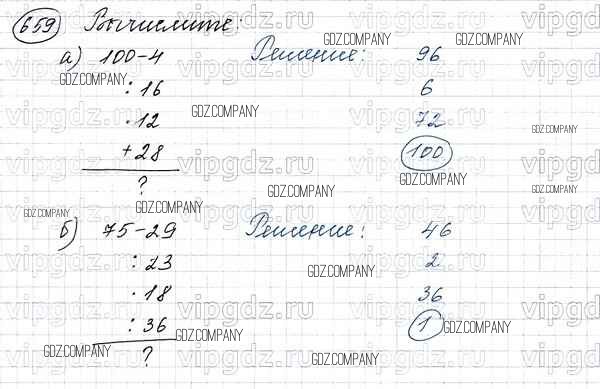 659 Вычислите:
а) 100-4 Решение: 96
: 16 6
· 12 72
+ 28 100
?
б) 75-29 Решение: 46
: 23 2
· 18 36
: 36 1
?
GDZ.COMPANY
vipgdz.ru